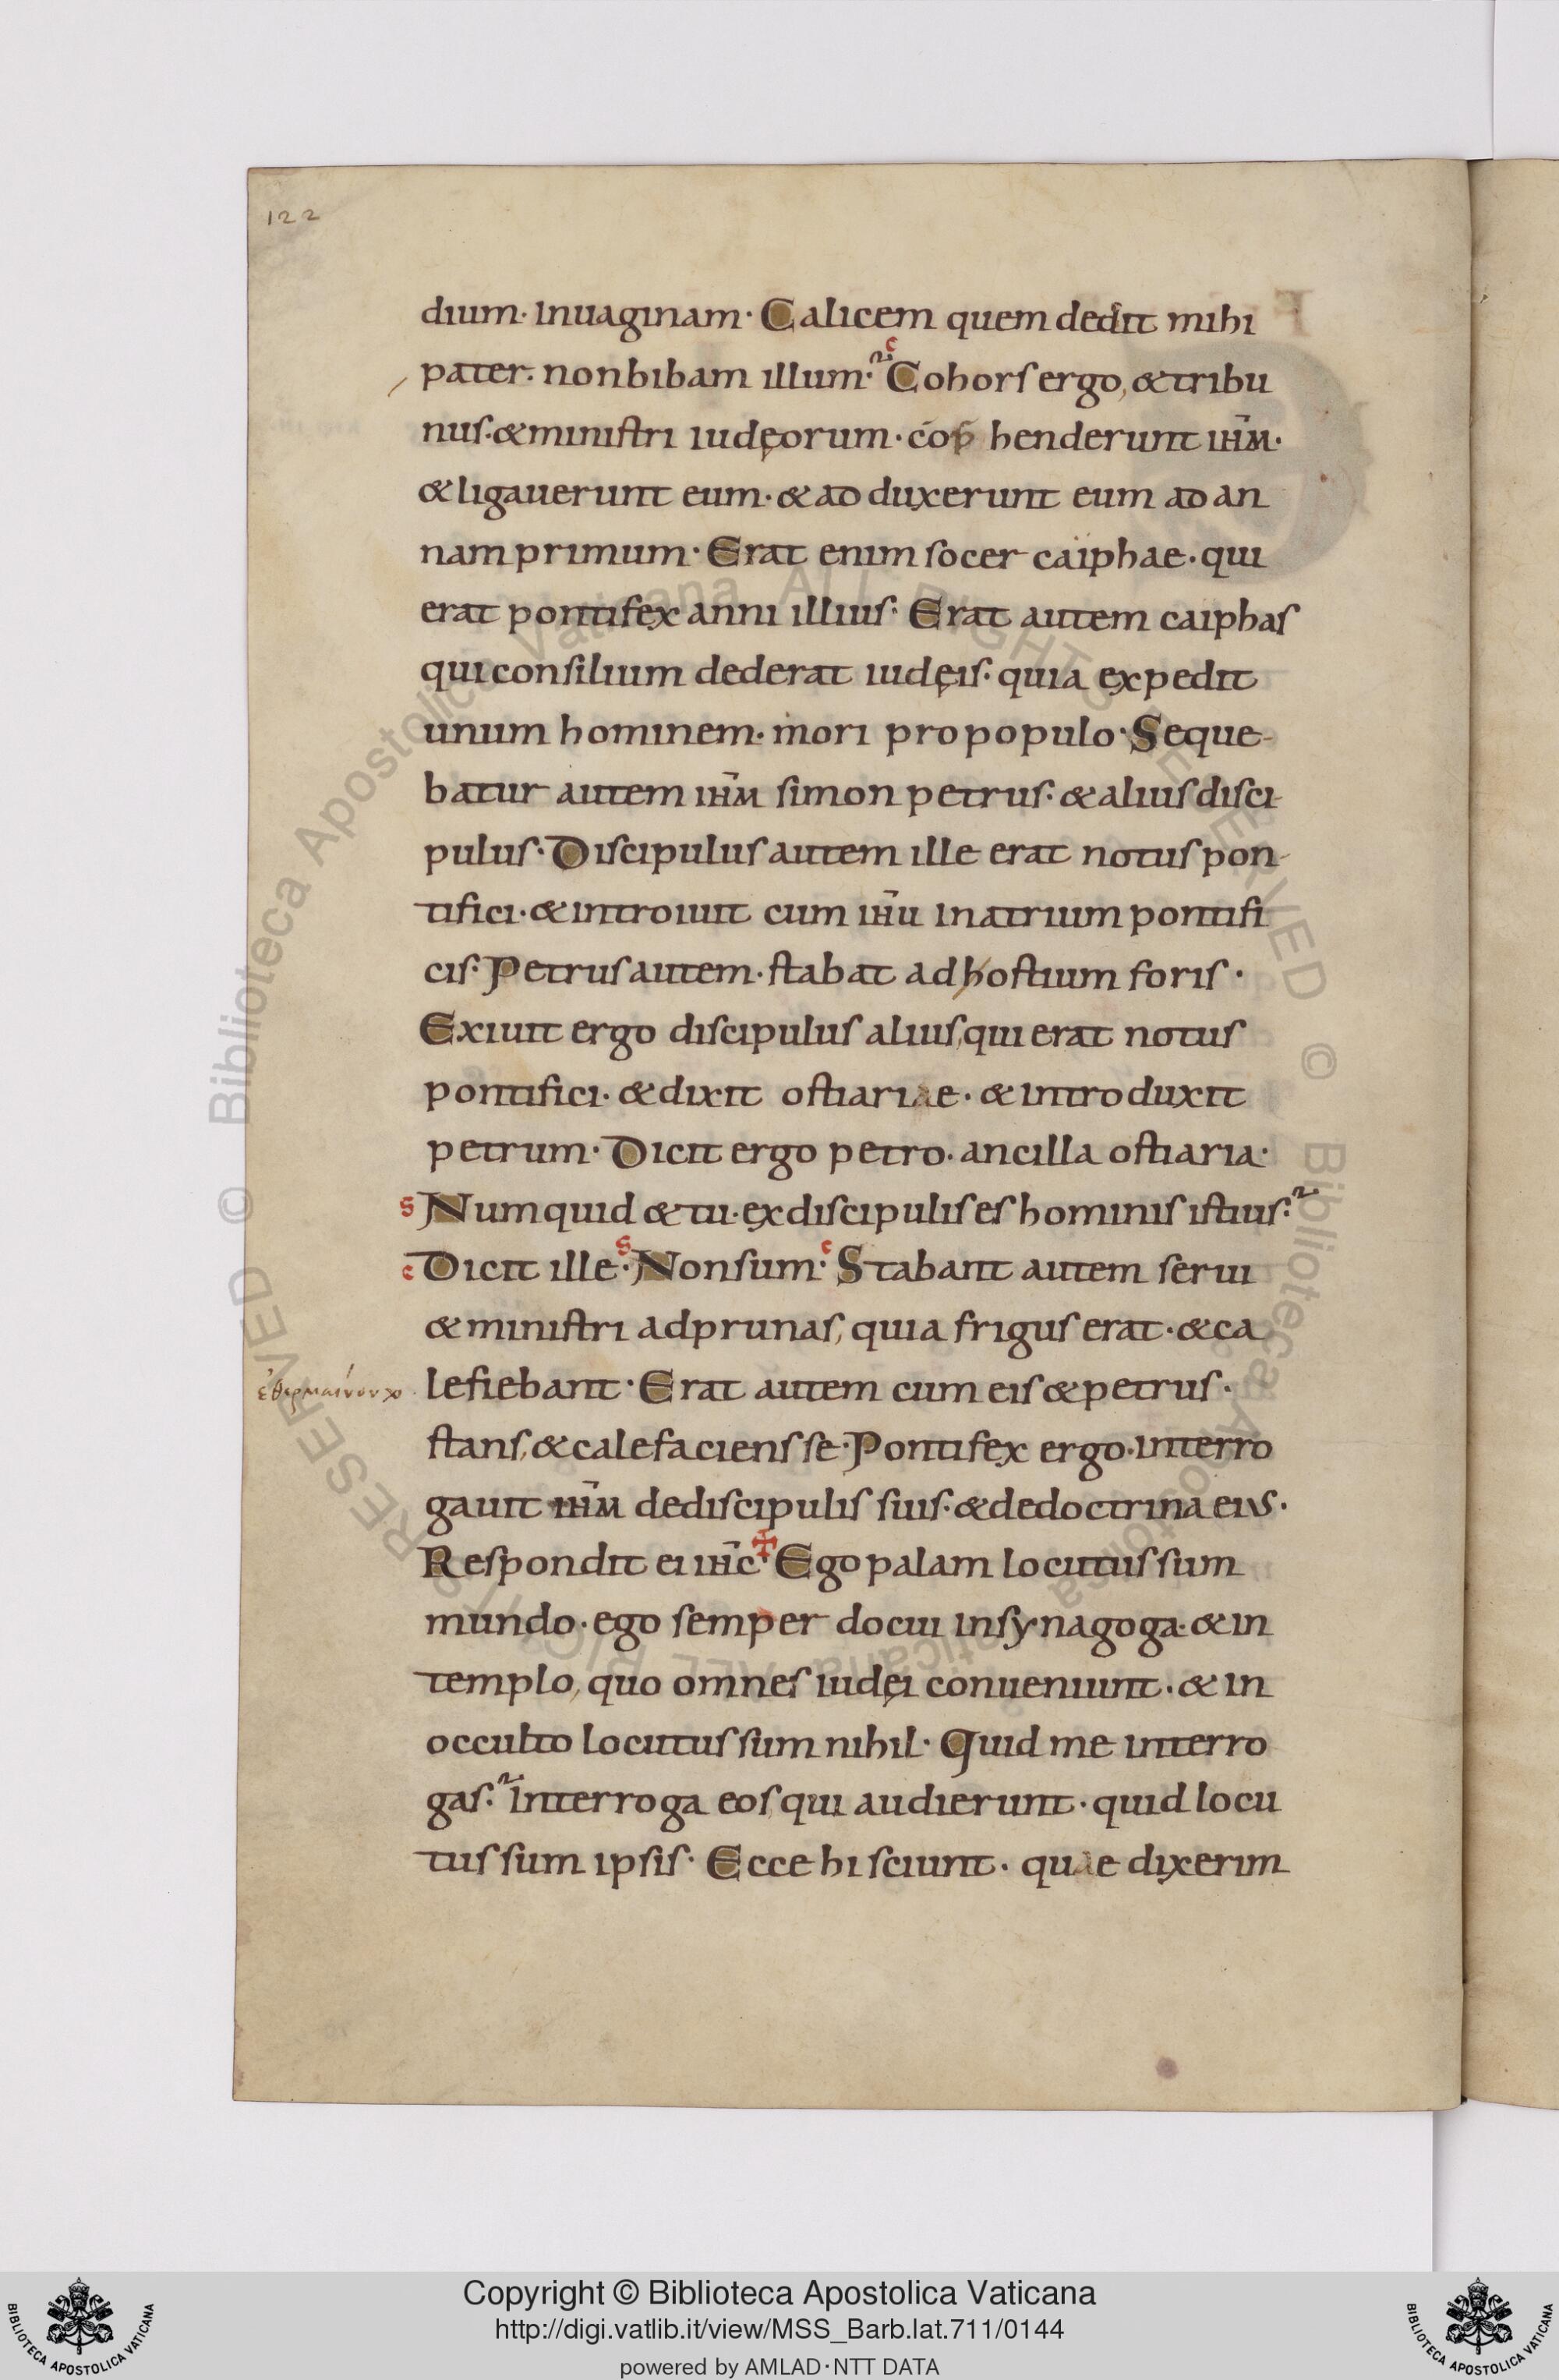 122
dium· inuaginam· Calicem quem dedit mihi
pater· nonbibam illum· Cohors ergo, &tribu
nus·&ministri iudęorum· cōp̄ henderunt ιħ̄м·
&ligauerunt eum· &ad duxerunt eum ad an
nam primum· Erat enim socer caiphae· qui
erat pontifex anni illius· Erat autem caiphas
qui consilium dederat iudęis· quia expedit
unum hominem· mori pro populo· Seque-
batur autem ιħ̄м simon petrus· &alius disci-
pulus· Discipulus autem ille erat notus pon-
tifici· &introiuit cum ιħ̄u inatrium pontifi
cis· Petrus autem· stabat ad hostium foris·
Exiuit ergo discipulus alius, qui erat notus
pontifici· &dixit ostiariae· &introduxit
petrum· Dicit ergo petro· ancilla ostiaria·
s Numquid &tu· exdiscipulis es hominis istius·
c Dicit ille· s Nonsum· c Stabant autem serui
&ministri adprunas, quia frigus erat· &ca
lefiebant· Erat autem cum eis &petrus·
stans, &calefaciens se· Pontifex ergo· interro
gauit ιħ̄м dediscipulis suis· &dedoctrina eius·
Respondit ei ιħ̄c· ✝ Ego palam locutus sum
mundo· ego semper docui insynagoga· &in
templo, quo omnes iudęi conueniunt· &in
occulto locutus sum nihil· Quid me interro
gas· Interroga eos, qui audierunt· quid locu
tus sum ipsis· Ecce hi sciunt· quae dixerim
Copyright © Biblioteca Apostolica Vaticana
http://digi.vatlib.it/view/MSS_Barb.lat.711/0144
powered by AMLAD·NTT DATA
BIBLIOTECA APOSTOLICA VATICANA
BIBLIOTECA APOSTOLICA VATICANA